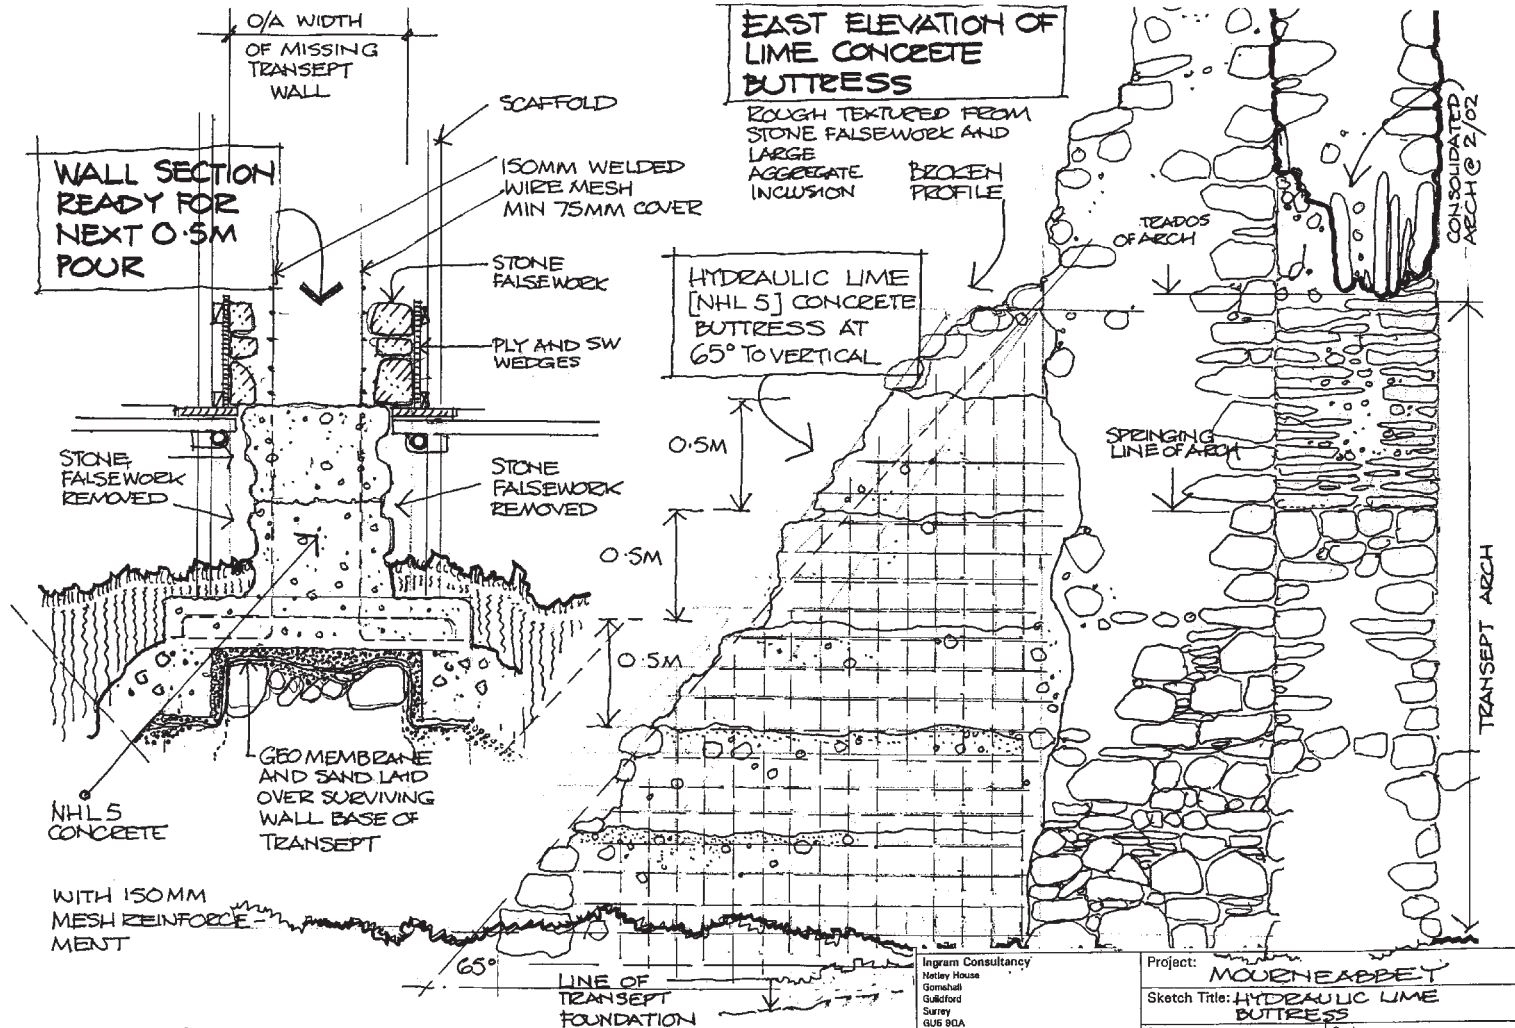 O/A WIDTH
OF MISSING
TRANSEPT
WALL
SCAFFOLD
WALL SECTION
READY FOR
NEXT 0.5M
POUR
150MM WELDED
WIRE MESH
MIN 75MM COVER
STONE
FALSEWORK
PLY AND SW
WEDGES
STONE
FALSEWORK
REMOVED
STONE
FALSEWORK
REMOVED
GEOMEMBRANE
AND SAND LAID
OVER SURVIVING
WALL BASE OF
TRANSEPT
NHL5
CONCRETE
WITH 150MM
MESH REINFORCE-
MENT
EAST ELEVATION OF
LIME CONCRETE
BUTTRESS
ROUGH TEXTURED FROM
STONE FALSEWORK AND
LARGE
AGGREGATE
INCLUSION
BROKEN
PROFILE
HYDRAULIC LIME
[NHL 5] CONCRETE
BUTTRESS AT
65° TO VERTICAL
0.5M
0.5M
0.5M
65°
LINE OF
TRANSEPT
FOUNDATION
TRADOS
OF ARCH
SPRINGING
LINE OF ARCH
CONSOLIDATED
ARCH @ 2/02
TRANSEPT ARCH
Ingram Consultancy
Netley House
Gomshall
Guildford
Surrey
GU5 9QA
Project: MOURNEABBEY
Sketch Title: HYDRAULIC LIME
BUTTRESS